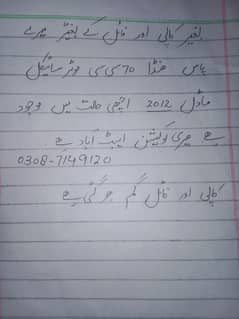 بغیر کاپی اور فائل کے بغیر میرے
پاس ہنڈا 70 سی سی موٹر سائیکل
ماڈل 2012 اچھی حالت میں موجود
ہے میری لوکیشن ایبٹ آباد ہے
0308-7149120
کاپی اور فائل گم ہو گئی ہے